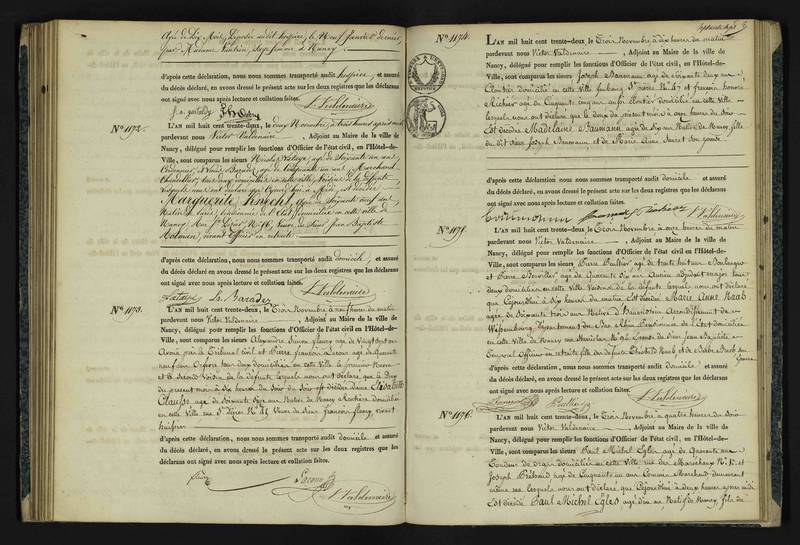 Agée de Six Mois, Déposée audit hospice, le Neuf Janvier dernier,
par Madame sage femme à Nancy.
d'après cette déclaration, nous nous sommes transporté audit hospice, et assuré
du décès déclaré, en avons dressé le présent acte sur les deux registres que les déclarans
ont signé avec nous après lecture et collation faites.
Valdenaire
N.° 1172.
L'AN mil huit cent trente-deux, le deux Novembre, à trois heures après midi
pardevant nous Victor Valdenaire, Adjoint au Maire de la ville de
Nancy, délégué pour remplir les fonctions d'Officier de l'état civil, en l'Hôtel-de-
Ville, sont comparus les sieurs Nicolas Lataye, agé de Soixante un ans
Cordonnier, et Louis Baradez, agé de Cinquante un ans Marchand
Chandellier, tous deux domiciliés en cette ville, Voisins de la défunte
lesquels nous ont déclaré que Cejourd'hui à Midi, est décédée
Marguerite Knecht, agée de Soixante neuf ans
Native de Paris, pensionnée de l'Etat, domiciliée en cette ville de
Nancy, Rue St Dizier, N.° 76, Veuve de Sieur Jean Baptiste
vivant officier en retraite.
d'après cette déclaration, nous nous sommes transporté audit domicile, et assuré
du décès déclaré en avons dressé le présent acte sur les deux registres que les déclarans
ont signé avec nous après lecture et collation faites.
Lataye Ls. Baradez Valdenaire
N.° 1173.
L'AN mil huit cent trente-deux, le Trois Novembre à neuf heures du matin
pardevant nous Victor Valdenaire, Adjoint au Maire de la ville de
Nancy, délégué pour remplir les fonctions d'Officier de l'état civil en l'Hôtel-de-
Ville, sont comparus les sieurs Alexandre Simon fleury agé de Vingt sept ans
Avoué près le Tribunal Civil et Pierre françois Lacour agé de quarante
neuf ans tous deux domiciliés en cette Ville le premier Neveu
et le Second Voisin de la défunte lesquels nous ont déclaré que le Deux
du présent mois à dix heures du Soir est décédée Dame Elisabeth
agée de Soixante Dix ans Native de Nancy Rentière domiciliée
en cette Ville rue St Dizier N.° 11 Veuve de Sieur françois fleury vivant
huissier
d'après cette déclaration, nous nous sommes transporté audit domicile et assuré
du décès déclaré, en avons dressé le présent acte sur les deux registres que les
déclarans ont signé avec nous après lecture et collation faites.
Valdenaire
N.° 1174.
L'AN mil huit cent trente-deux, le Trois Novembre à dix heures du matin
pardevant nous Victor Valdenaire, Adjoint au Maire de la ville de
Nancy, délégué pour remplir les fonctions d'Officier de l'état civil, en l'Hôtel-de-
Ville, sont comparus les sieurs Joseph Baumann agé de soixante deux ans
domicilié en cette Ville faubourg St Pierre N.° 67 et françois honoré
Richier agé de Cinquante cinq ans aussi domicilié en cette ville
lesquels nous ont déclaré que le deux du présent mois à onze heures du Soir
Est décédée Madelaine Baumann agée de dix ans Native de Nancy, fille
du dit Sieur Joseph Baumann et de Marie Anne son épouse
d'après cette déclaration, nous nous sommes transporté audit domicile et assuré
du décès déclaré, en avons dressé le présent acte sur les deux registres que les déclarans
ont signé avec nous après lecture et collation faites.
Valdenaire
N.° 1175.
L'AN mil huit cent trente-deux, le Trois Novembre à onze heures du matin
pardevant nous Victor Valdenaire, Adjoint au Maire de la ville de
Nancy, délégué pour remplir les fonctions d'Officier de l'état civil, en l'Hôtel-de-
Ville, sont comparus les sieurs Pierre Pulthier agé de trente huit ans Boulanger
et Pierre agé de Quarante Six ans Ancien Adjudant major tous
deux domiciliés en cette Ville Voisins de la défunte lesquels nous ont déclaré
que Cejourd'hui à Dix heures du matin est décédée Marie Anne Raab
agée de Soixante trois ans Native de Arrondissement de
Wissembourg, département du Bas Rhin Pensionnée de l'Etat domiciliée
en cette Ville de Nancy rue Stanislas N.° 26 Epouse de Sieur Jean Baptiste
Caporal Officier en retraite fille des défunts Raab et de
d'après cette déclaration, nous nous sommes transporté audit domicile et assuré
du décès déclaré, en avons dressé le présent acte sur les deux registres que les déclarans
ont signé avec nous après lecture et collation faites.
Valdenaire
N.° 1176.
L'AN mil huit cent trente-deux, le Trois Novembre à quatre heures du Soir
pardevant nous Victor Valdenaire, Adjoint au Maire de la ville de
Nancy, délégué pour remplir les fonctions d'Officier de l'état civil, en l'Hôtel-de-
Ville, sont comparus les sieurs Paul Michel Egler agé de Quarante ans
Tondeur de Draps domicilié en cette Ville rue des Maréchaux N.° 15 et
Joseph agé de Cinquante un ans Cousin Marchand demeurant
même rue lesquels nous ont déclaré que Cejourd'hui à deux heures après midi
Est décédé Paul Michel Egler agé d'un an, Natif de Nancy, fils du